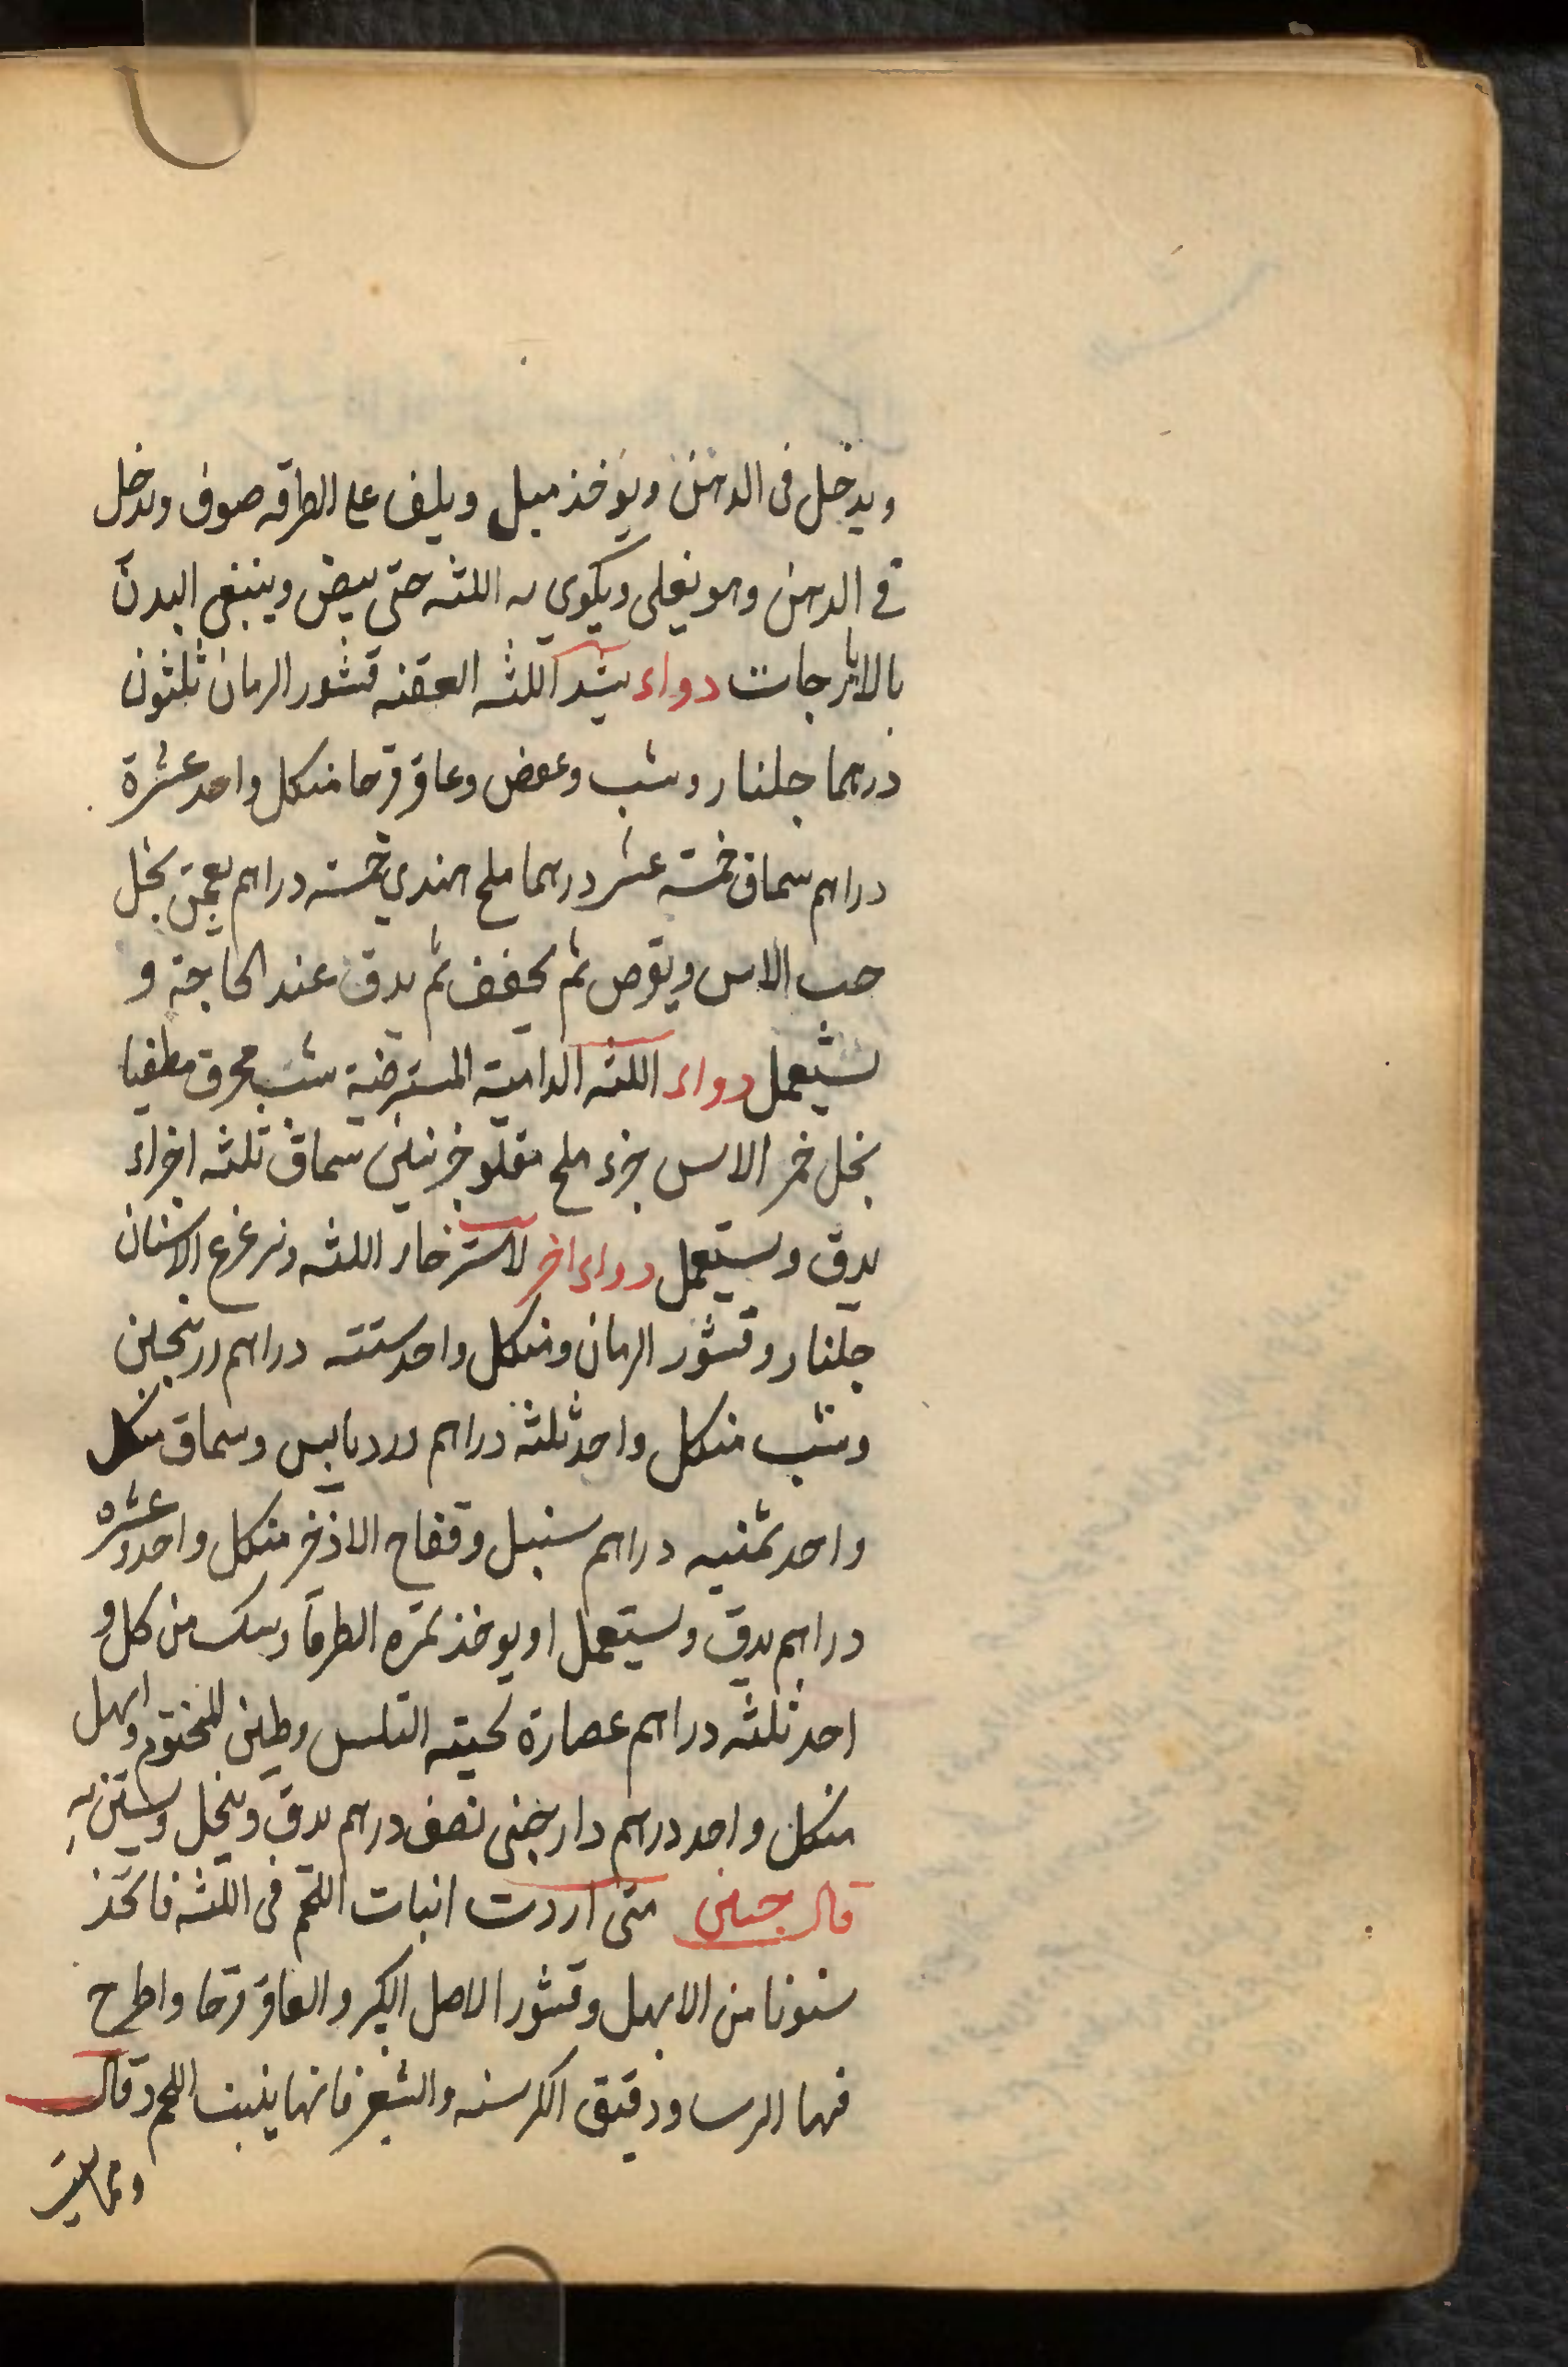 ويدخل في الدهن ويوخذ ميل ويلف على اطرافه صوف ويدخل
في الدهن وهو يغلي ويكوي به اللثه حتى يبيض وينبغى البدن
بالايارجات دواء يشد اللثه العفنه قشور الرمان ثلثون
درهما جلنار وشب وعفص وعاقرقرحا منكل واحد عشرة
دراهم سماق خمسة عشر درهما ملح الهندي خمسه دراهم يعجن بخل
حب الاس ويقرص ثم يجفف ثم يدق عند الحاجة و
يستعمل دواء اللثه الدامية المسترخية شب محرق مطفيا
بخل خمر الاس جزء ملح مقلو جزئين سماق ثلثه اجزاء
يدق ويستعمل دواء اخر لاسترخاء اللثه وتزعزع الاسنان
جلنار وقشور الرمان ومنكل واحد ستته دراهم زرنجين
وشب منكل واحد ثلثة دراهم ورد يابس وسماق منكل
واحد ثمنيه دراهم سنبل وفقاح الاذخر منكل واحد عشره
دراهم يدق ويستعمل او يوخذ ثمره الطرفا وسك من كل و
احد ثلثه دراهم عصارة لحيته التلس وطين المختوم وابهل
منكل واحد درهم دارچنى نصف درهم يدق وينخل ويستن به
قال حنين متى اردت انبات اللحم في اللثه فاتخذ
سنونا من الابهل وقشور الاصل الكبر والعاقرقرحا واطرح
فيها ايرسا ودقيق الكرسنه والشعير فانها ينبت اللحم وقال